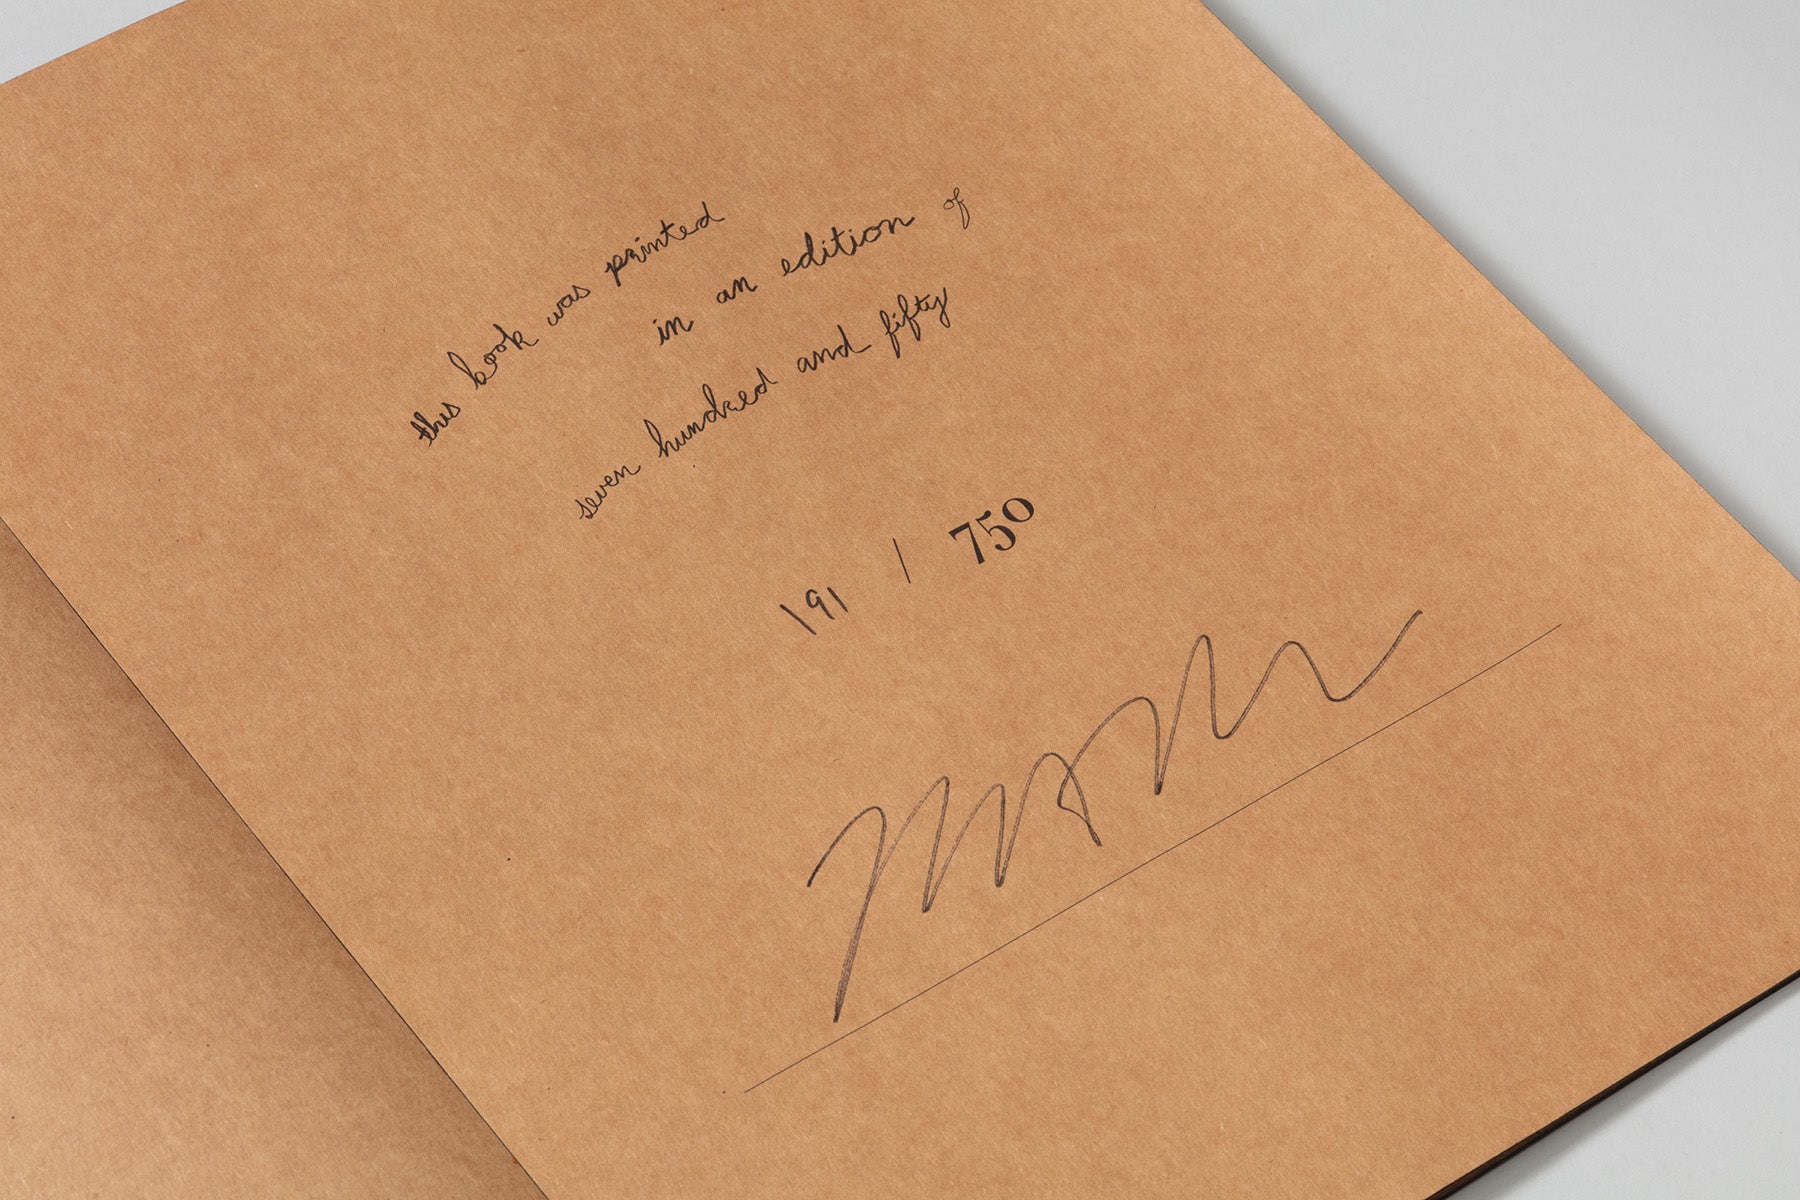 this book was printed
in an edition of
seven hundred and fifty
191 / 750